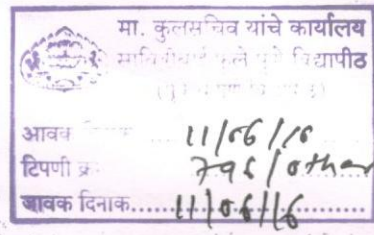 मा. कुलसचिव यांचे कार्यालय
सावित्रीबाई फुले पुणे विद्यापीठ
आवक 11/06/16
टिपणी क्र. 796/other
जावक दिनाक......11/06/16